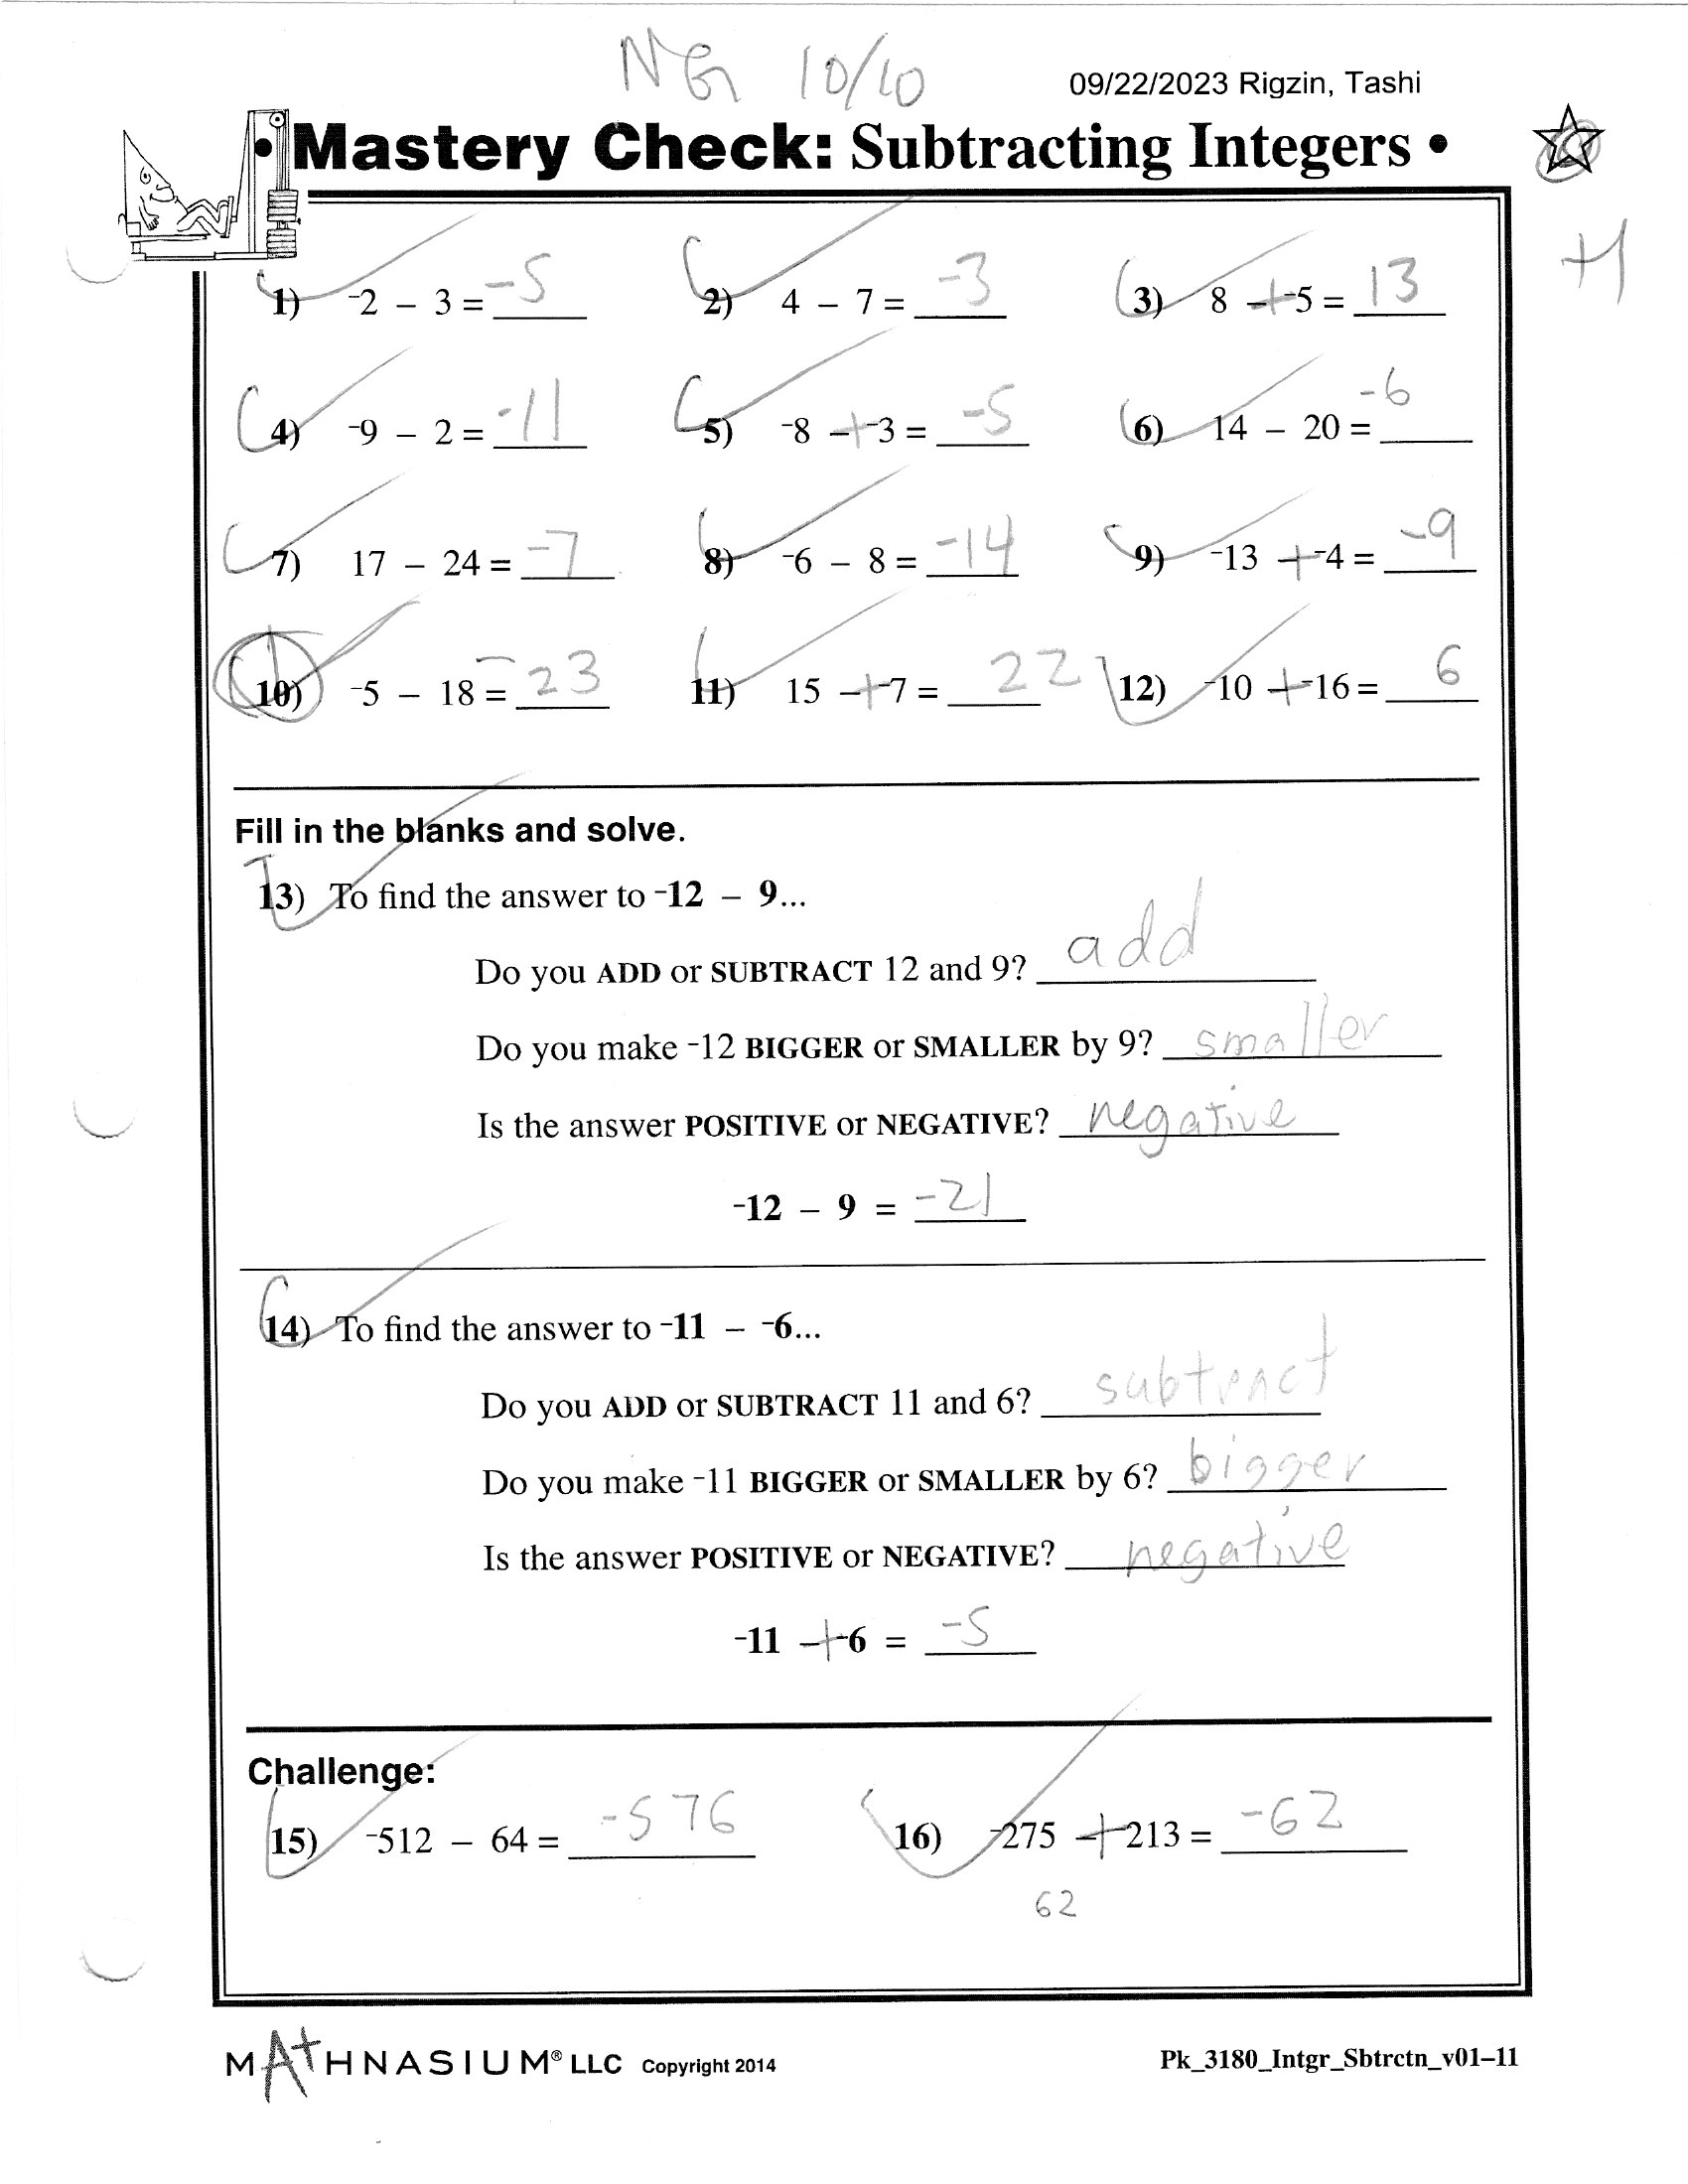 NG 10/10
09/22/2023 Rigzin, Tashi
• Mastery Check: Subtracting Integers •
+1
1) ⁻2 – 3 = -5 2) 4 – 7 = -3 3) 8 –+ ⁻5 = 13
4) ⁻9 – 2 = -11 5) ⁻8 –+ ⁻3 = -5 6) 14 – 20 = -6
7) 17 – 24 = -7 8) ⁻6 – 8 = -14 9) ⁻13 –+ ⁻4 = -9
10) ⁻5 – 18 = -23 11) 15 –+ ⁻7 = 22 12) ⁻10 –+ ⁻16 = 6
Fill in the blanks and solve.
13) To find the answer to ⁻12 – 9...
Do you ADD or SUBTRACT 12 and 9? add
Do you make ⁻12 BIGGER or SMALLER by 9? smaller
Is the answer POSITIVE or NEGATIVE? negative
⁻12 – 9 = -21
14) To find the answer to ⁻11 – ⁻6...
Do you ADD or SUBTRACT 11 and 6? subtract
Do you make ⁻11 BIGGER or SMALLER by 6? bigger
Is the answer POSITIVE or NEGATIVE? negative
⁻11 –+ ⁻6 = -5
Challenge:
15) ⁻512 – 64 = -576 16) ⁻275 –+ ⁻213 = -62
62
MATHNASIUM® LLC Copyright 2014 Pk_3180_Intgr_Sbtrctn_v01–11